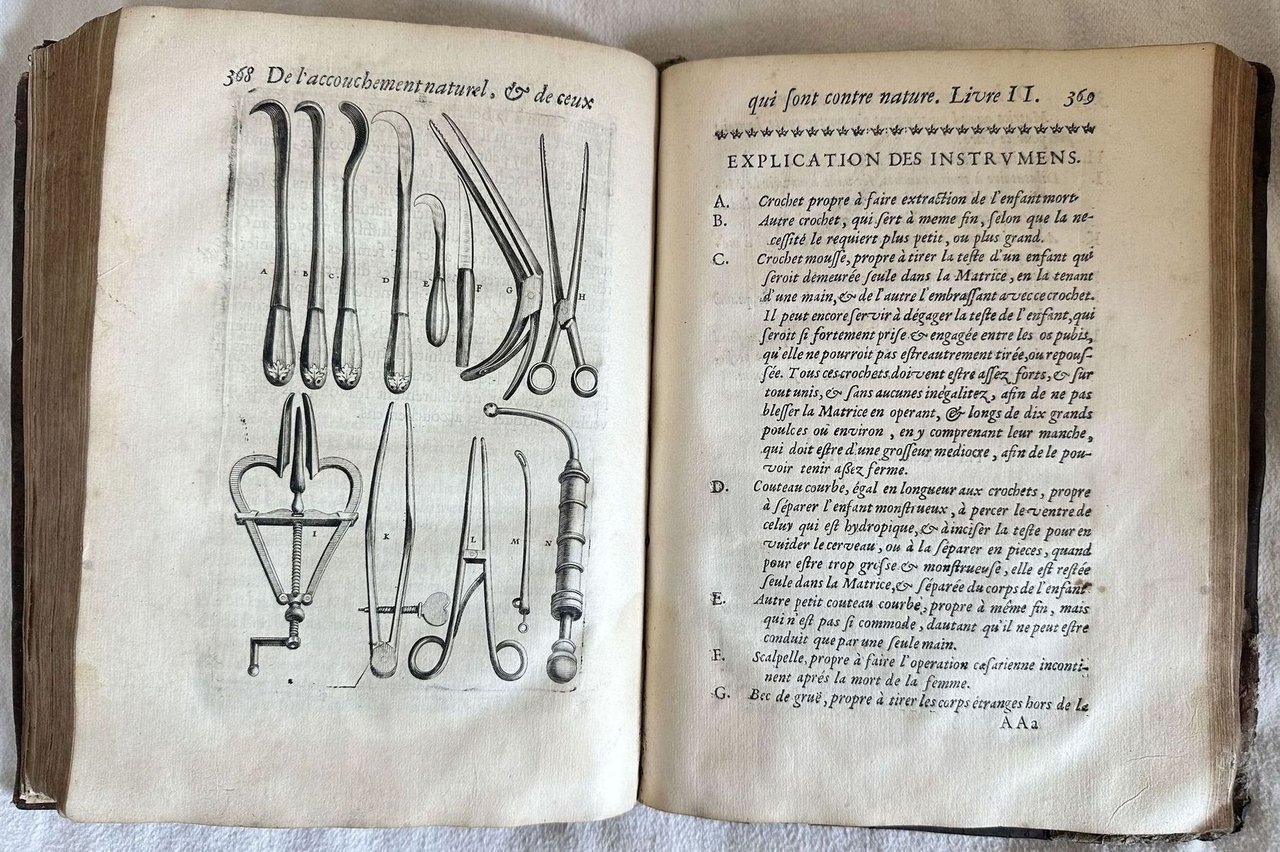 368 De l'accouchement naturel, & de ceux
A B C D E F G H
I K L M N
qui ſont contre nature. Livre II. 369
EXPLICATION DES INSTRVMENS.
A. Crochet propre à faire extraction de l'enfant mort
B. Autre crochet, qui ſert à meme fin, ſelon que la ne-
ceſſité le requiert plus petit, ou plus grand.
C. Crochet mouſſe, propre à tirer la teſte d'un enfant qui
ſeroit demeurée ſeule dans la Matrice, en la tenant
d'une main, & de l'autre l'embraſſant avec ce crochet.
Il peut encore ſervir à dégager la teſte de l'enfant, qui
ſeroit ſi fortement priſe & engagée entre les os pubis,
qu'elle ne pourroit pas eſtre autrement tirée, ou repouſ-
ſée. Tous ces crochets doivent eſtre aſſez forts, & ſur
tout unis, & ſans aucunes inégalitez, afin de ne pas
bleſſer la Matrice en operant, & longs de dix grands
poulces ou environ, en y comprenant leur manche,
qui doit eſtre d'une groſſeur mediocre, afin de le pou-
voir tenir aßez ferme.
D. Couteau courbe, égal en longueur aux crochets, propre
à ſéparer l'enfant monſtrueux, à percer le ventre de
celuy qui eſt hydropique, & à inciſer la teſte pour en
vuider le cerveau, ou à la ſéparer en pieces, quand
pour eſtre trop groſſe & monſtrueuse, elle eſt reſtée
ſeule dans la Matrice, & ſéparée du corps de l'enfant
E. Autre petit couteau courbe, propre à même fin, mais
qui n'eſt pas ſi commode, dautant qu'il ne peut eſtre
conduit que par une ſeule main.
F. Scalpelle, propre à faire l'operation cæſarienne inconti-
nent aprés la mort de la femme.
G. Bec de gruë, propre à tirer les corps étranges hors de la
AAa